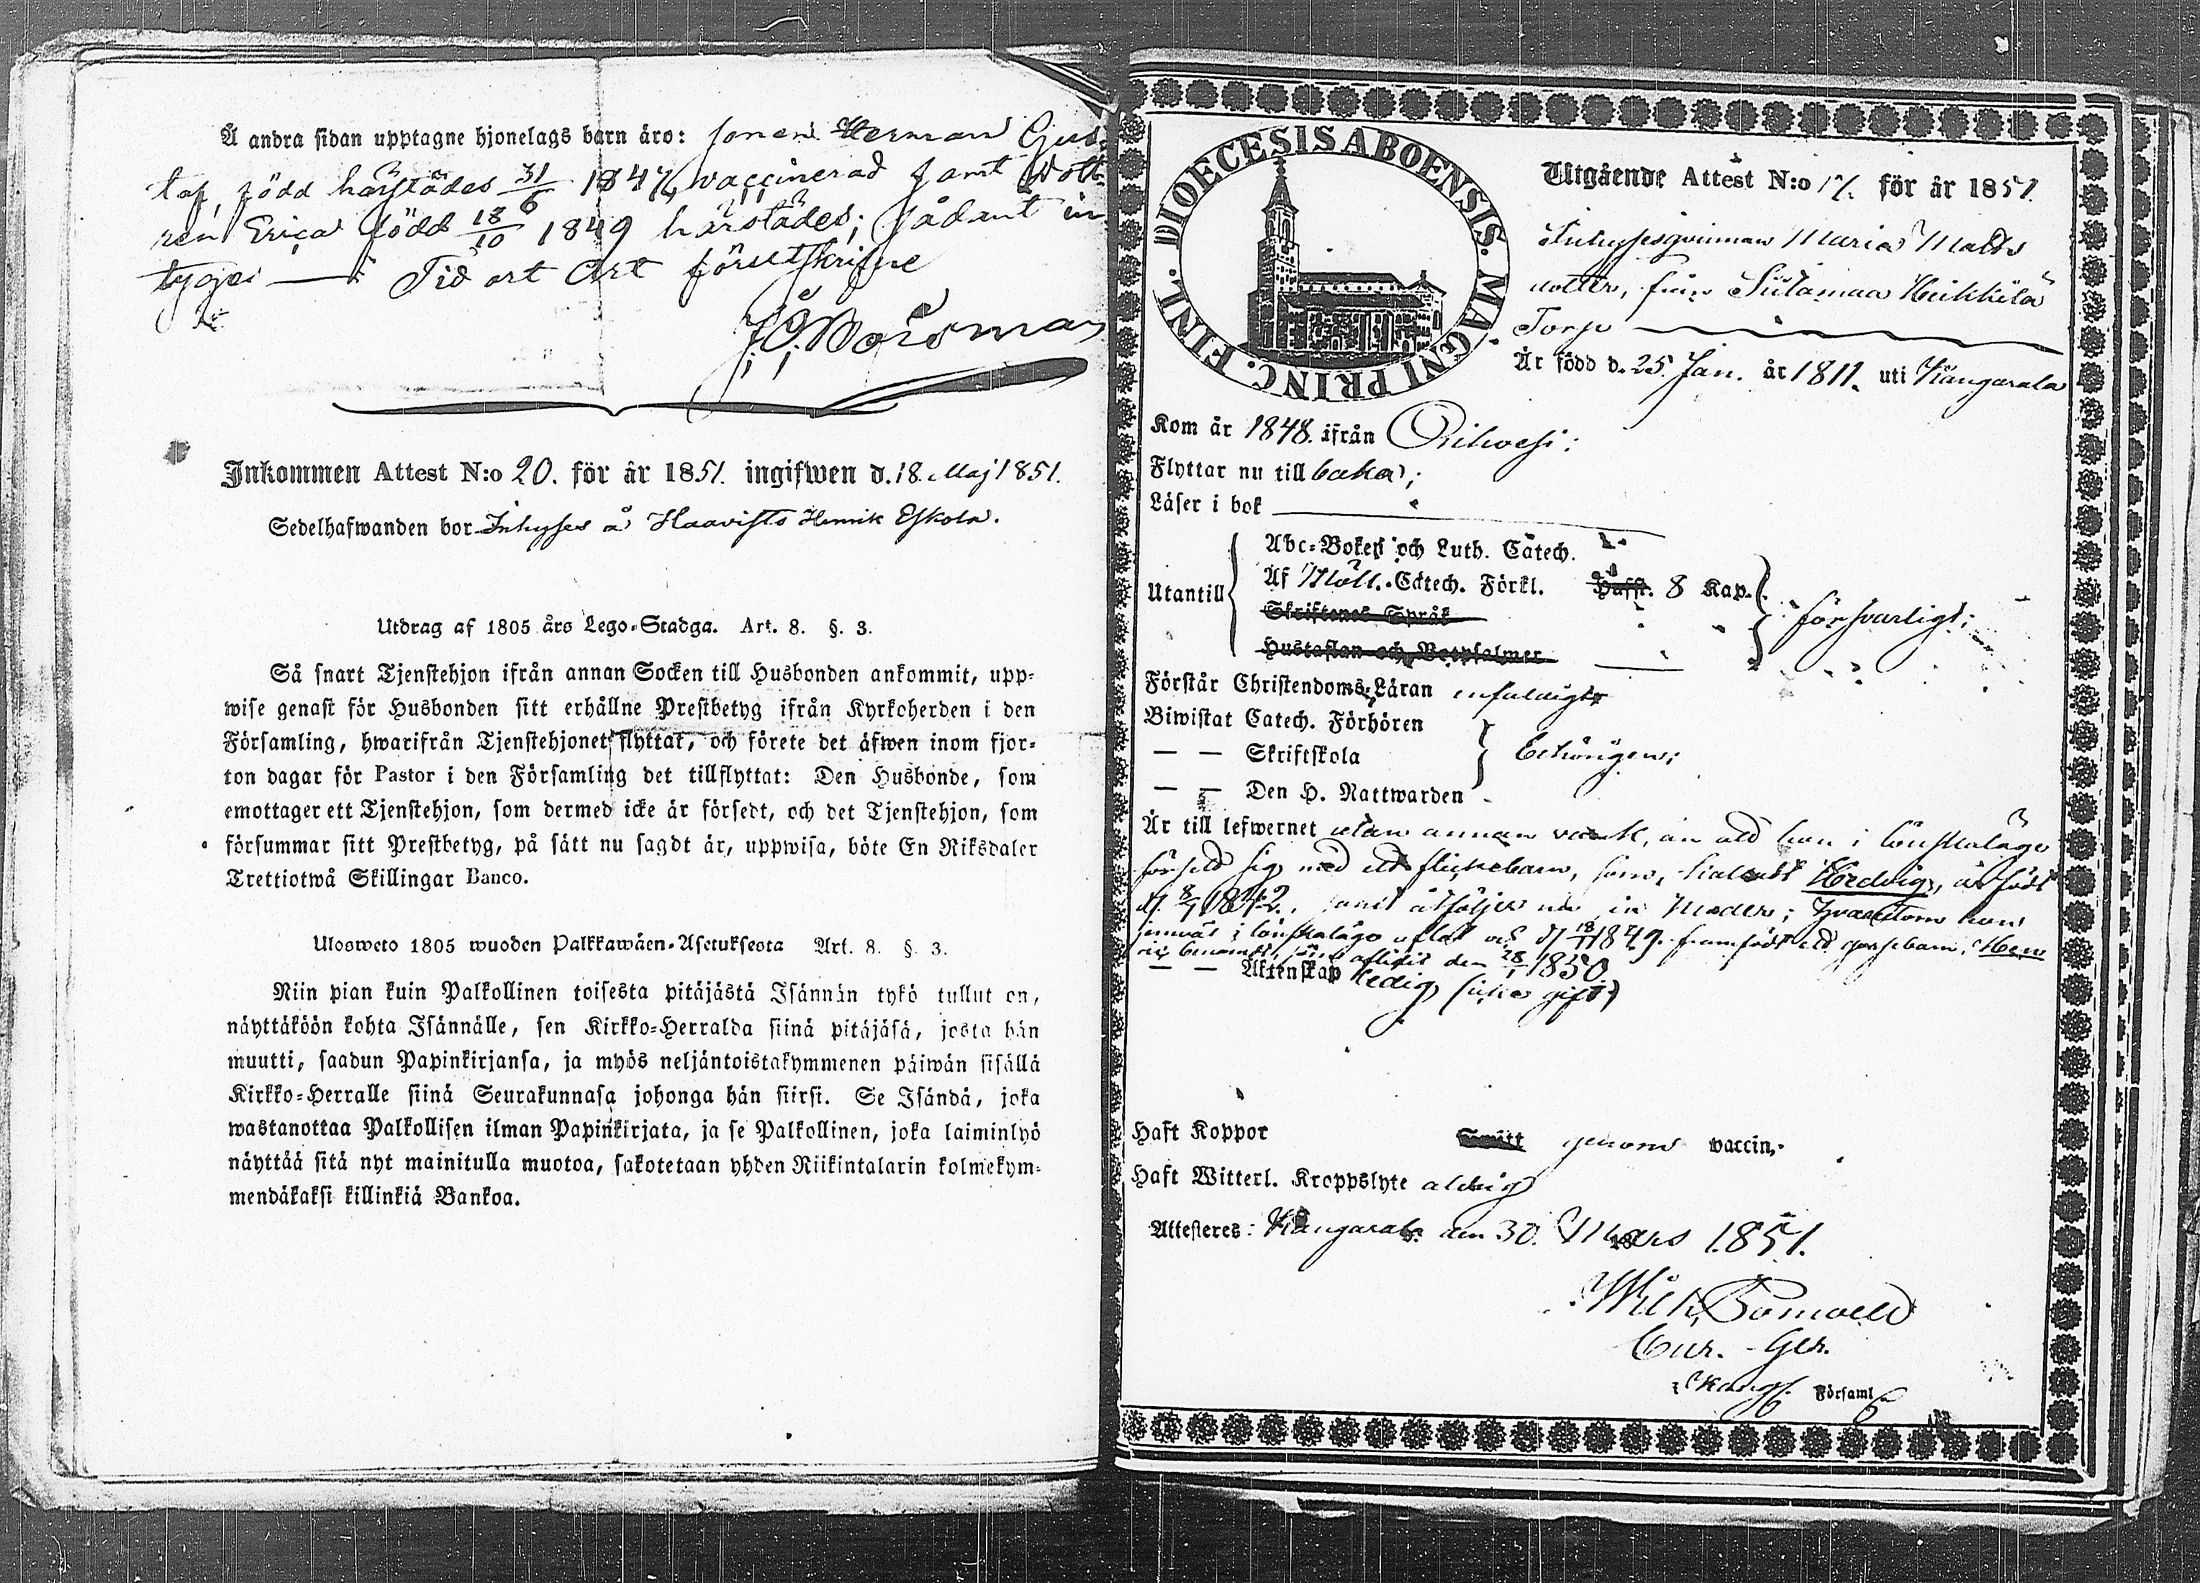 Å andra sidan upptagne hjonelags barn äro: Sonen Herman Gus-
taf, född härstädes 31/6 1847, vaccinerad samt Dott-
ren Erica född 18/10 1849 härstädes; sådant in-
tygar — Tid ort Art förutskrifne
J. O. Woisman
Inkommen Attest N:o 20. för år 1851. ingifwen d. 18. Maj 1851.
Sedelhafwanden bor Inhyses å Haavisto Henrik Eskola.
Utdrag af 1805 års Lego-Stadga. Art. 8. §. 3.
Så snart Tjenstehjon ifrån annan Socken till Husbonden ankommit, upp-
wise genast för Husbonden sitt erhållne Prestbetyg ifrån Kyrkoherden i den
Församling, hwarifrån Tjenstehjonet flyttat, och förete det äfwen inom fjor-
ton dagar för Pastor i den Församling det tillflyttat: Den Husbonde, som
emottager ett Tjenstehjon, som dermed icke är försedt, och det Tjenstehjon, som
försummar sitt Prestbetyg, på sätt nu sagdt är, uppwisa, böte En Riksdaler
Trettiotwå Skillingar Banco.
Ulosweto 1805 wuoden Palkkawäen-Asetuksesta Art. 8. §. 3.
Niin pian kuin Palkollinen toisesta pitäjästä Isännän tykö tullut on,
näyttäköön kohta Isännälle, sen Kirkko-Herralda siinä pitäjäsä, josta hän
muutti, saadun Papinkirjansa, ja myös neljäntoistakymmenen päiwän sisällä
Kirkko-Herralle siinä Seurakunnasa johonga hän siirsi. Se Isändä, joka
wastanottaa Palkollisen ilman Papinkirjata, ja se Palkollinen, joka laiminlyö
näyttää sitä nyt mainitulla muotoa, sakotetaan yhden Riikintalarin kolmekym-
mendäkaksi killinkiä Bankoa.
DIOECESIS ABOENSIS. MAGNI PRINC. FINL.
Utgående Attest N:o 17. för år 1851.
Inhysesqvinnan Maria Matts
dotter, från Siitamaa Heikkilä
Torp
Är född d. 25. Jan. år 1811. uti Kangasala
Kom år 1848. ifrån Orihvesi:
Flyttar nu till baka;
Läser i bok
Abc-Boken och Luth. Catech.
Utantill Af Möll. Catech. Förkl. Husst. 8 Kap. försvarligt;
Skriftenes Språk
Hustaflan och Botpsalmer
Förstår Christendoms-Läran enfaldigt
Biwistat Catech. Förhören
— — Skriftskola behörigen;
— — Den H. Nattwarden
Är till lefwernet utan annan vank, än att hon i lönskaläge
försett sig med ett flickebarn, som, kalladt Hedvig, är född
d. 8/7 1842., samt åtföljer nu sin Moder; hvarutom hon
jemväl i lönskaläge aflat och d. 18/11 1849. framfödt ett gossebarn, Hen
ric benämndt, som aflidit den 28/1 1850.
— — Äktenskap ledig (icke gift)
Haft Koppor Smitt genom vaccin.
Haft Witterl. Kroppslyte aldrig
Attesteres: Kangasala den 30. Mars 1851.
Wilh. Bomwell
Cur. Ger.
Kang. Församl